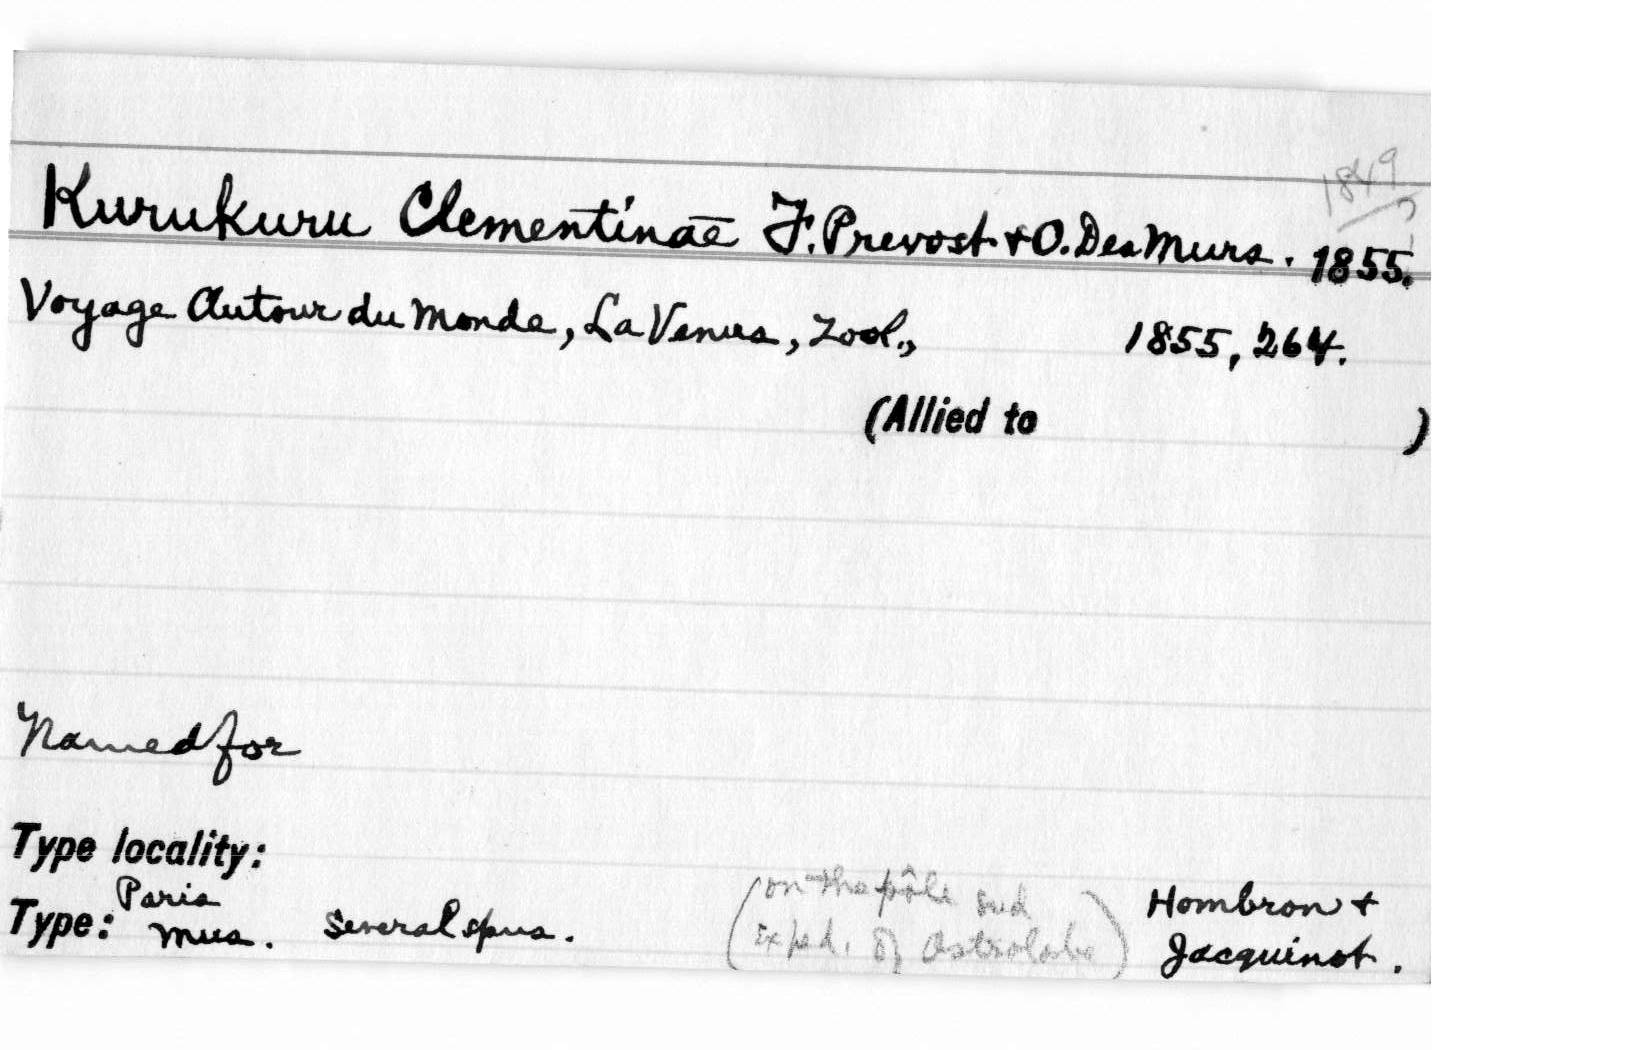 1849?
Kurukuru Clementinae F. Prevost + O. Des Murs. 1855.
Voyage Autour du Monde, La Venus, Zool., 1855, 264.
(Allied to )
Named for
Type locality:
Type: Paris Mus. Several spns. (on the pôle sud Exped. of Astrolabe) Hombron + Jacquinot.